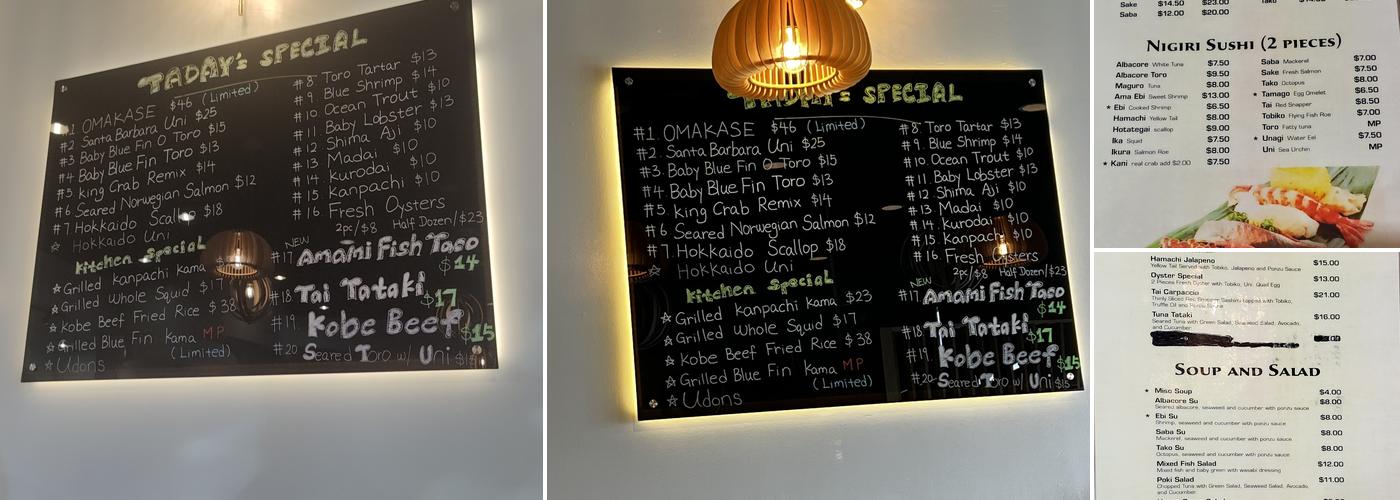 TADAY's SPECIAL
#1 OMAKASE $46 (Limited)
#2 Santa Barbara Uni $25
#3 Baby Blue Fin O Toro $15
#4 Baby Blue Fin Toro $13
#5 king Crab Remix $14
#6 Seared Norwegian Salmon $12
#7 Hokkaido Scallop $18
☆ Hokkaido Uni
kitchen Special
☆ Grilled kanpachi kama
☆ Grilled Whole Squid $17
☆ kobe Beef Fried Rice $38
☆ Grilled Blue Fin kama MP
(Limited)
☆ Udons
#8 Toro Tartar $13
#9. Blue Shrimp $14
#10 Ocean Trout $10
#11 Baby Lobster $13
#12 Shima Aji $10
#13 Madai $10
#14 Kurodai $10
#15 Kanpachi $10
#16 Fresh Oysters
2pc/$8 Half Dozen/$23
NEW
#17 Amami Fish Taco
$14
#18 Tai Tataki
$17
#19 Kobe Beef $15
#20 Seared Toro w/ Uni
TADAY's SPECIAL
#1. OMAKASE $46 (Limited)
#2. Santa Barbara Uni $25
#3. Baby Blue Fin O Toro $15
#4 Baby Blue Fin Toro $13
#5. king Crab Remix $14
#6 Seared Norwegian Salmon $12
#7. Hokkaido Scallop $18
☆ Hokkaido Uni
kitchen Special
☆ Grilled kanpachi kama $23
☆ Grilled Whole Squid $17
☆ kobe Beef Fried Rice $38
☆ Grilled Blue Fin kama MP
(Limited)
☆ Udons
#8 Toro Tartar $13
#9. Blue Shrimp $14
#10. Ocean Trout $10
#11. Baby Lobster $13
#12 Shima Aji $10
#13. Madai $10
#14. Kurodai $10
#15. Kanpachi $10
#16. Fresh Oysters
2pc/$8 Half Dozen/$23
NEW
#17 Amami Fish Taco
$14
#18 Tai Tataki
$17
#19. Kobe Beef $15
#20 Seared Toro w/ Uni $15
Sake $14.50 $23.00
Saba $12.00 $20.00
Nigiri Sushi (2 pieces)
Albacore White Tuna $7.50
Albacore Toro $9.50
Maguro Tuna $8.00
Ama Ebi Sweet Shrimp $13.00
★ Ebi Cooked Shrimp $6.50
Hamachi Yellow Tail $8.00
Hotategai scallop $9.00
Ika Squid $7.50
Ikura Salmon Roe $8.00
★ Kani real crab add $2.00 $7.50
Saba Mackerel $7.00
Sake Fresh Salmon $7.50
Tako Octopus $8.00
★ Tamago Egg Omelet $6.50
Tai Red Snapper $8.50
Tobiko Flying Fish Roe $7.00
Toro Fatty tuna MP
★ Unagi Water Eel $7.50
Uni Sea Urchin MP
Hamachi Jalapeno $15.00
Yellow Tail Served with Tobiko, Jalapeno and Ponzu Sauce
Oyster Special $13.00
2 Pieces Fresh Oyster with Tobiko, Uni, Quail Egg
Tai Carpaccio $21.00
Thinly Sliced Red Snapper Sashimi topped with Tobiko,
Truffle Oil and Ponzu Sauce
Tuna Tataki $16.00
Seared Tuna with Green Salad, Seaweed Salad, Avocado,
and Cucumber
Soup and Salad
★ Miso Soup $4.00
Albacore Su $8.00
Seared albacore, seaweed and cucumber with ponzu sauce
★ Ebi Su $8.00
Shrimp, seaweed and cucumber with ponzu sauce
Saba Su $8.00
Mackerel, seaweed and cucumber with ponzu sauce
Tako Su $8.00
Octopus, seaweed and cucumber with ponzu sauce
Mixed Fish Salad $12.00
Mixed fish and baby green with wasabi dressing
Poki Salad $11.00
Chopped Tuna with Green Salad, Seaweed Salad, Avocado,
and Cucumber